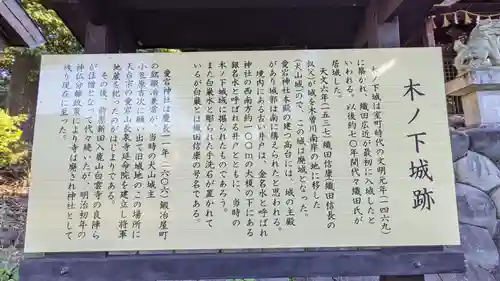 木ノ下城跡
木ノ下城は室町時代の文明元年(一四六九)
に築かれ、織田広近が最初に入城したと
いわれる。以後約一〇〇年間代々織田氏が
居城した。
天文六年(一五三七)織田信康(織田信長の
叔父)が城を木曽川南岸の地に移した
(犬山城)ので、この城は廃城となった。
愛宕神社本殿の建つ高台には、城の主殿
があり城郭は南に構えられたと思われる。
境内にある古い井戸は、金名水と呼ばれ
神社の西南方約一〇〇mの大榎の下にある
銀名水と呼ばれる井戸とともに、当時の
木ノ下城に掘られたものであろう。
また白厳水と彫られた手洗石が置かれて
いるが白厳は織田信康の号名である。
愛宕神社は慶長十一年(一六〇六)鍛冶屋町
の鍛冶治郎が、当時の犬山城主
小笠原吉次に願い出、旧城地のこの場所に
天台宗の愛宕山長泉寺延命院を建立し将軍
地蔵を祀ったのがはじまりである。
その後、前原新田入鹿山白雲寺の良陣ら
が住僧となって代々続いたが、明治初年の
神仏分離政策により寺は廃され神社として
残り現在に至った。